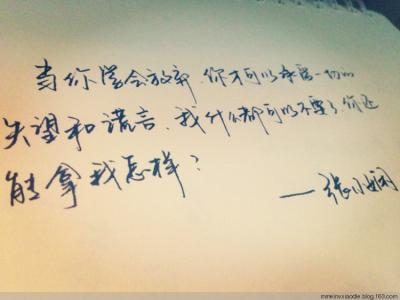 当你学会放弃，你才可以承受一切的
失望和谎言，我什么都可以不要了，你还
能拿我怎样？
——张小娴
mineinvxiaodie.blog.163.com